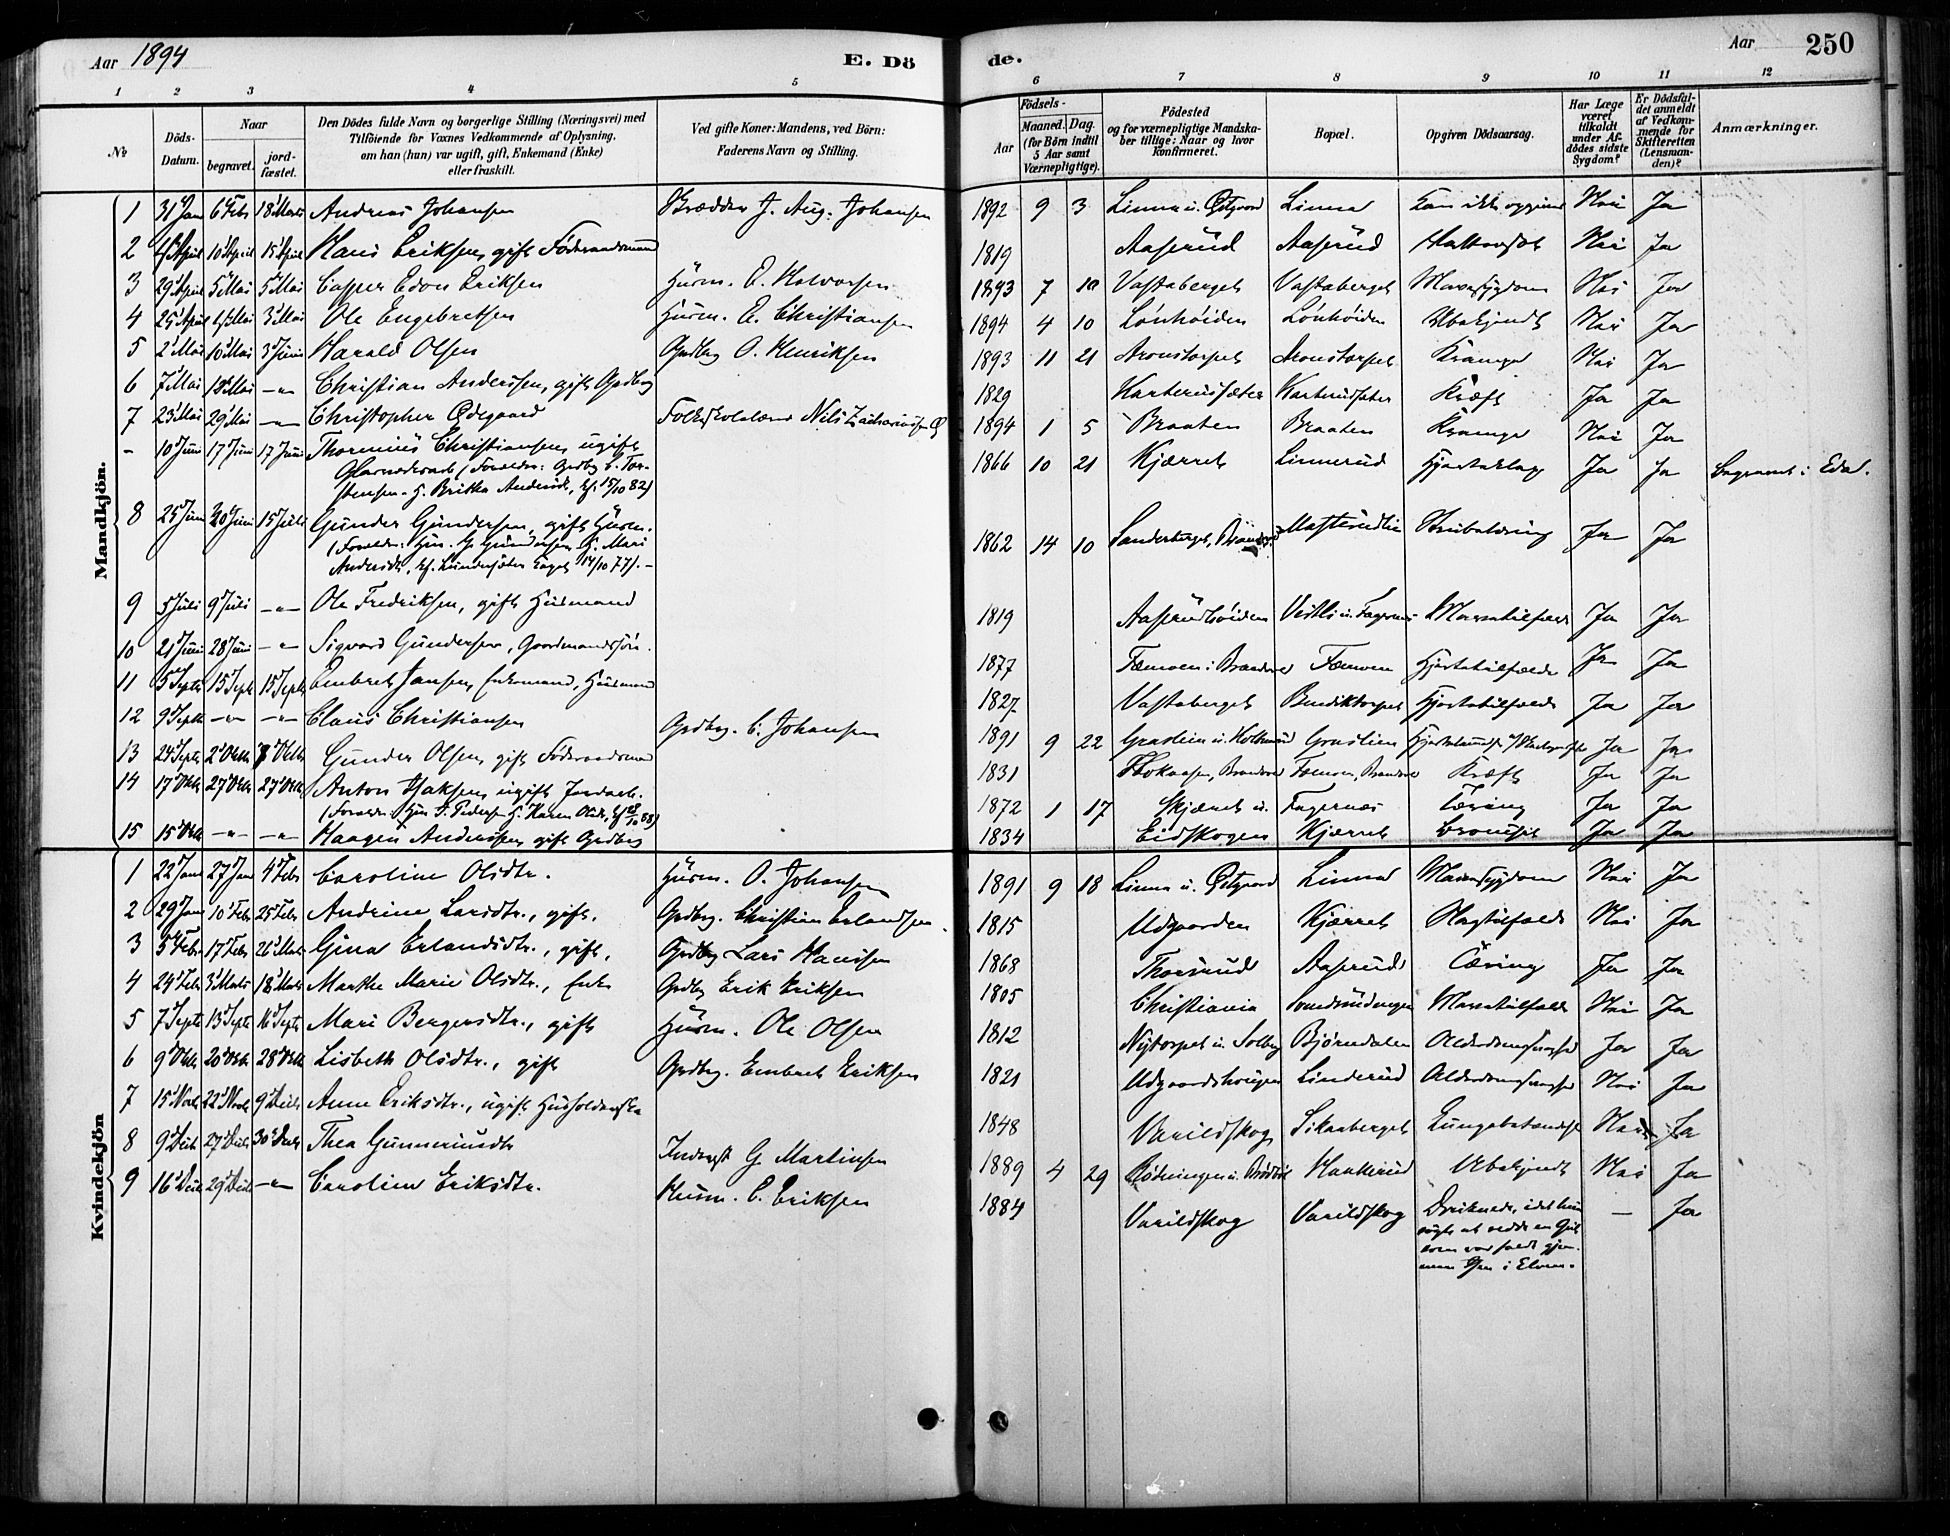 Aar 1894
E. Dö
de.
Aar
250
1 2 3 4 5 6 7 8 9 10 11 12
№
Döds-Datum.
Naar
begravet.
jord-fæstet.
Den Dödes fulde Navn og borgerlige Stilling (Næringsvei) med
Tilföiende for Voxnes Vedkommende af Oplysning,
om han (hun) var ugift, gift, Enkemand (Enke)
eller fraskilt.
Ved gifte Koner: Mandens, ved Börn:
Faderens Navn og Stilling.
Födsels-
Aar
Maaned. Dag.
(for Börn indtil
5 Aar samt
Værnepligtige).
Födested
og for værnepligtige Mandska-
ber tillige: Naar og hvor
Konfirmeret.
Bopæl.
Opgiven Dödsaarsag.
Har Læge
været
tilkaldt
under Af-
dödes sidste
Sygdom?
Er Dödsfal-
det anmeldt
af Vedkom-
mende for
Skifteretten
(Lensman-
den)?
Anmærkninger.
Mandkjön.
1 31 Jan 6 Feb 18 Marts Andreas Johansen J. Aug. Johansen 1892 9 3 Linna u. Linna Kan ikke opgives Nei Ja
2 4 April 10 April 15 April Hans Eriksen, gift Föderaadsmand 1819 Aaserud Aaserud Nei Ja
3 29 April 5 Mai 5 Mai Casper Edon Eriksen Husm. E. Halvorsen 1893 7 10 Vastaberget Vastaberget Mavesygdom Nei Ja
4 25 April 4 Mai 3 Mai Ole Engebretsen Husm. E. Christiansen 1894 4 10 Lönhöiden Lönhöiden Ubekjendt Nei Ja
5 2 Mai 10 Mai 3 Juni Harald Olsen Grdbg O. Henriksen 1893 11 21 Aronstorpet Aronstorpet Krampe Nei Ja
6 7 Mai 18 Mai -"- Christian Anderssen, gift Grdbrg 1829 Karterudsæter Karterudsæter Kræft Ja Ja
7 23 Mai 29 Mai -"- Christopher Ødegaard Folkeskolelærer Nils Zachariassen Ø 1894 1 5 Braaten Braaten Krampe Nei Ja
- 10 Juni 17 Juni 17 Juni Thorenius Christiansen, ugift 1866 10 21 Kjærret Linnerud Hjerteslag Ja Ja Begravet i Eda.
(Forældre: Grdbg C. Tor-
stensen. H. Britha Andersdt., 15/10 82)
8 25 Juni 30 Juni 15 Juli Gunder Gundersen, gift Husm. 1862 14 10 Sanderberget, Masterudlia Strubelidning Ja Ja
(Forældre: Hus. G. Gundersen H. Mari
Andersdt., Lundersæter 14/10 77).-
9 5 Juli 9 Juli -"- Ole Fredriksen, gift Husmand 1819 Aaserudhöiden Vestli u. Fagernes Mavetilfælde Ja Ja
10 21 Juni 28 Juni -"- Sigvard Gundersen, Gaardmandssön. 1877 Fæmoen i Brandval Fæmoen Hjertetilfælde Ja Ja
11 5 Septr 15 Septr 15 Septr Embret Jansen, Enkemand, Husmand 1827 Vastaberget Benediktorpet Hjertetilfælde Ja Ja
12 9 Septr -"- -"- Claus Christiansen Grdbrg. C. Johansen 1891 9 22 Graslien u. Graslien Ja Ja
13 24 Septr 2 Oktb 7 Oktb Gunder Olsen, gift Föderaadsmand 1831 Brandval Fæmoen, Brandval Kræft Ja Ja
14 17 Oktb 27 Oktb 27 Oktb Anton Isaksen, ugift Jordarb. 1872 1 17 Skjæret u. Fagernæs Tæring Ja Ja
(Forældre: Hus I. Pedersen H. Karen Olsdt.,
15 15 Oktb -"- -"- Haagen Anderssen gift Grdbrg 1834 Eidskogen Kjærret Ja Ja
Kvindekjön
1 22 Jan 27 Jan 4 Feb Caroline Olsdtr. Husm. O. Johansen 1891 9 18 Linna u. Linna Mavesygdom Nei Ja
2 29 Jan 10 Feb 25 Feb Andrine Larsdtr., gift. Grdbrg. Christian Erlandsen. 1815 Udgaarden Kjærret Nei Ja
3 5 Feb 17 Feb 26 Marts Gina Erlandsdtr., gift. Grdbrg Lars Hansen 1868 Thorsrud Aaserud Tæring Ja Ja
4 24 Feb 3 Marts 18 Marts Marthe Marie Olsdtr., Enke Grdbg Erik Eriksen 1805 Christiania Mavetilfælde Nei Ja
5 7 Septr 13 Septr 16 Septr Mari Bergersdtr., gift Husm. Ole Olsen 1812 Nytorpet u. Solberg Björnedalen Alderdomssvaghed Ja Ja
6 9 Oktb 20 Oktb 28 Oktb Lisbeth Olsdtr., gift Grdbrg. Embret Eriksen 1821 Udgaardshougen Linderud Alderdomssvaghed Nei Ja
7 15 Novb 22 Novb 9 Decb Anne Eriksdtr., ugift Husholderske 1848 Varildskog Sikaaberget Lungebetændelse Ja
8 9 Decb 27 Decb 30 Decb Thea Gunneriusdtr G. Martinsen 1889 4 29 Haukerud Ubekjendt Nei Ja
9 16 Decb 29 Decb -"- Caroline Eriksdtr. Husm. C. Eriksen 1884 Varildskog Varildskog Druknede, idet hun - Ja
søgte at redde en Gut
som var faldt gjen-
nem Isen i Elven.